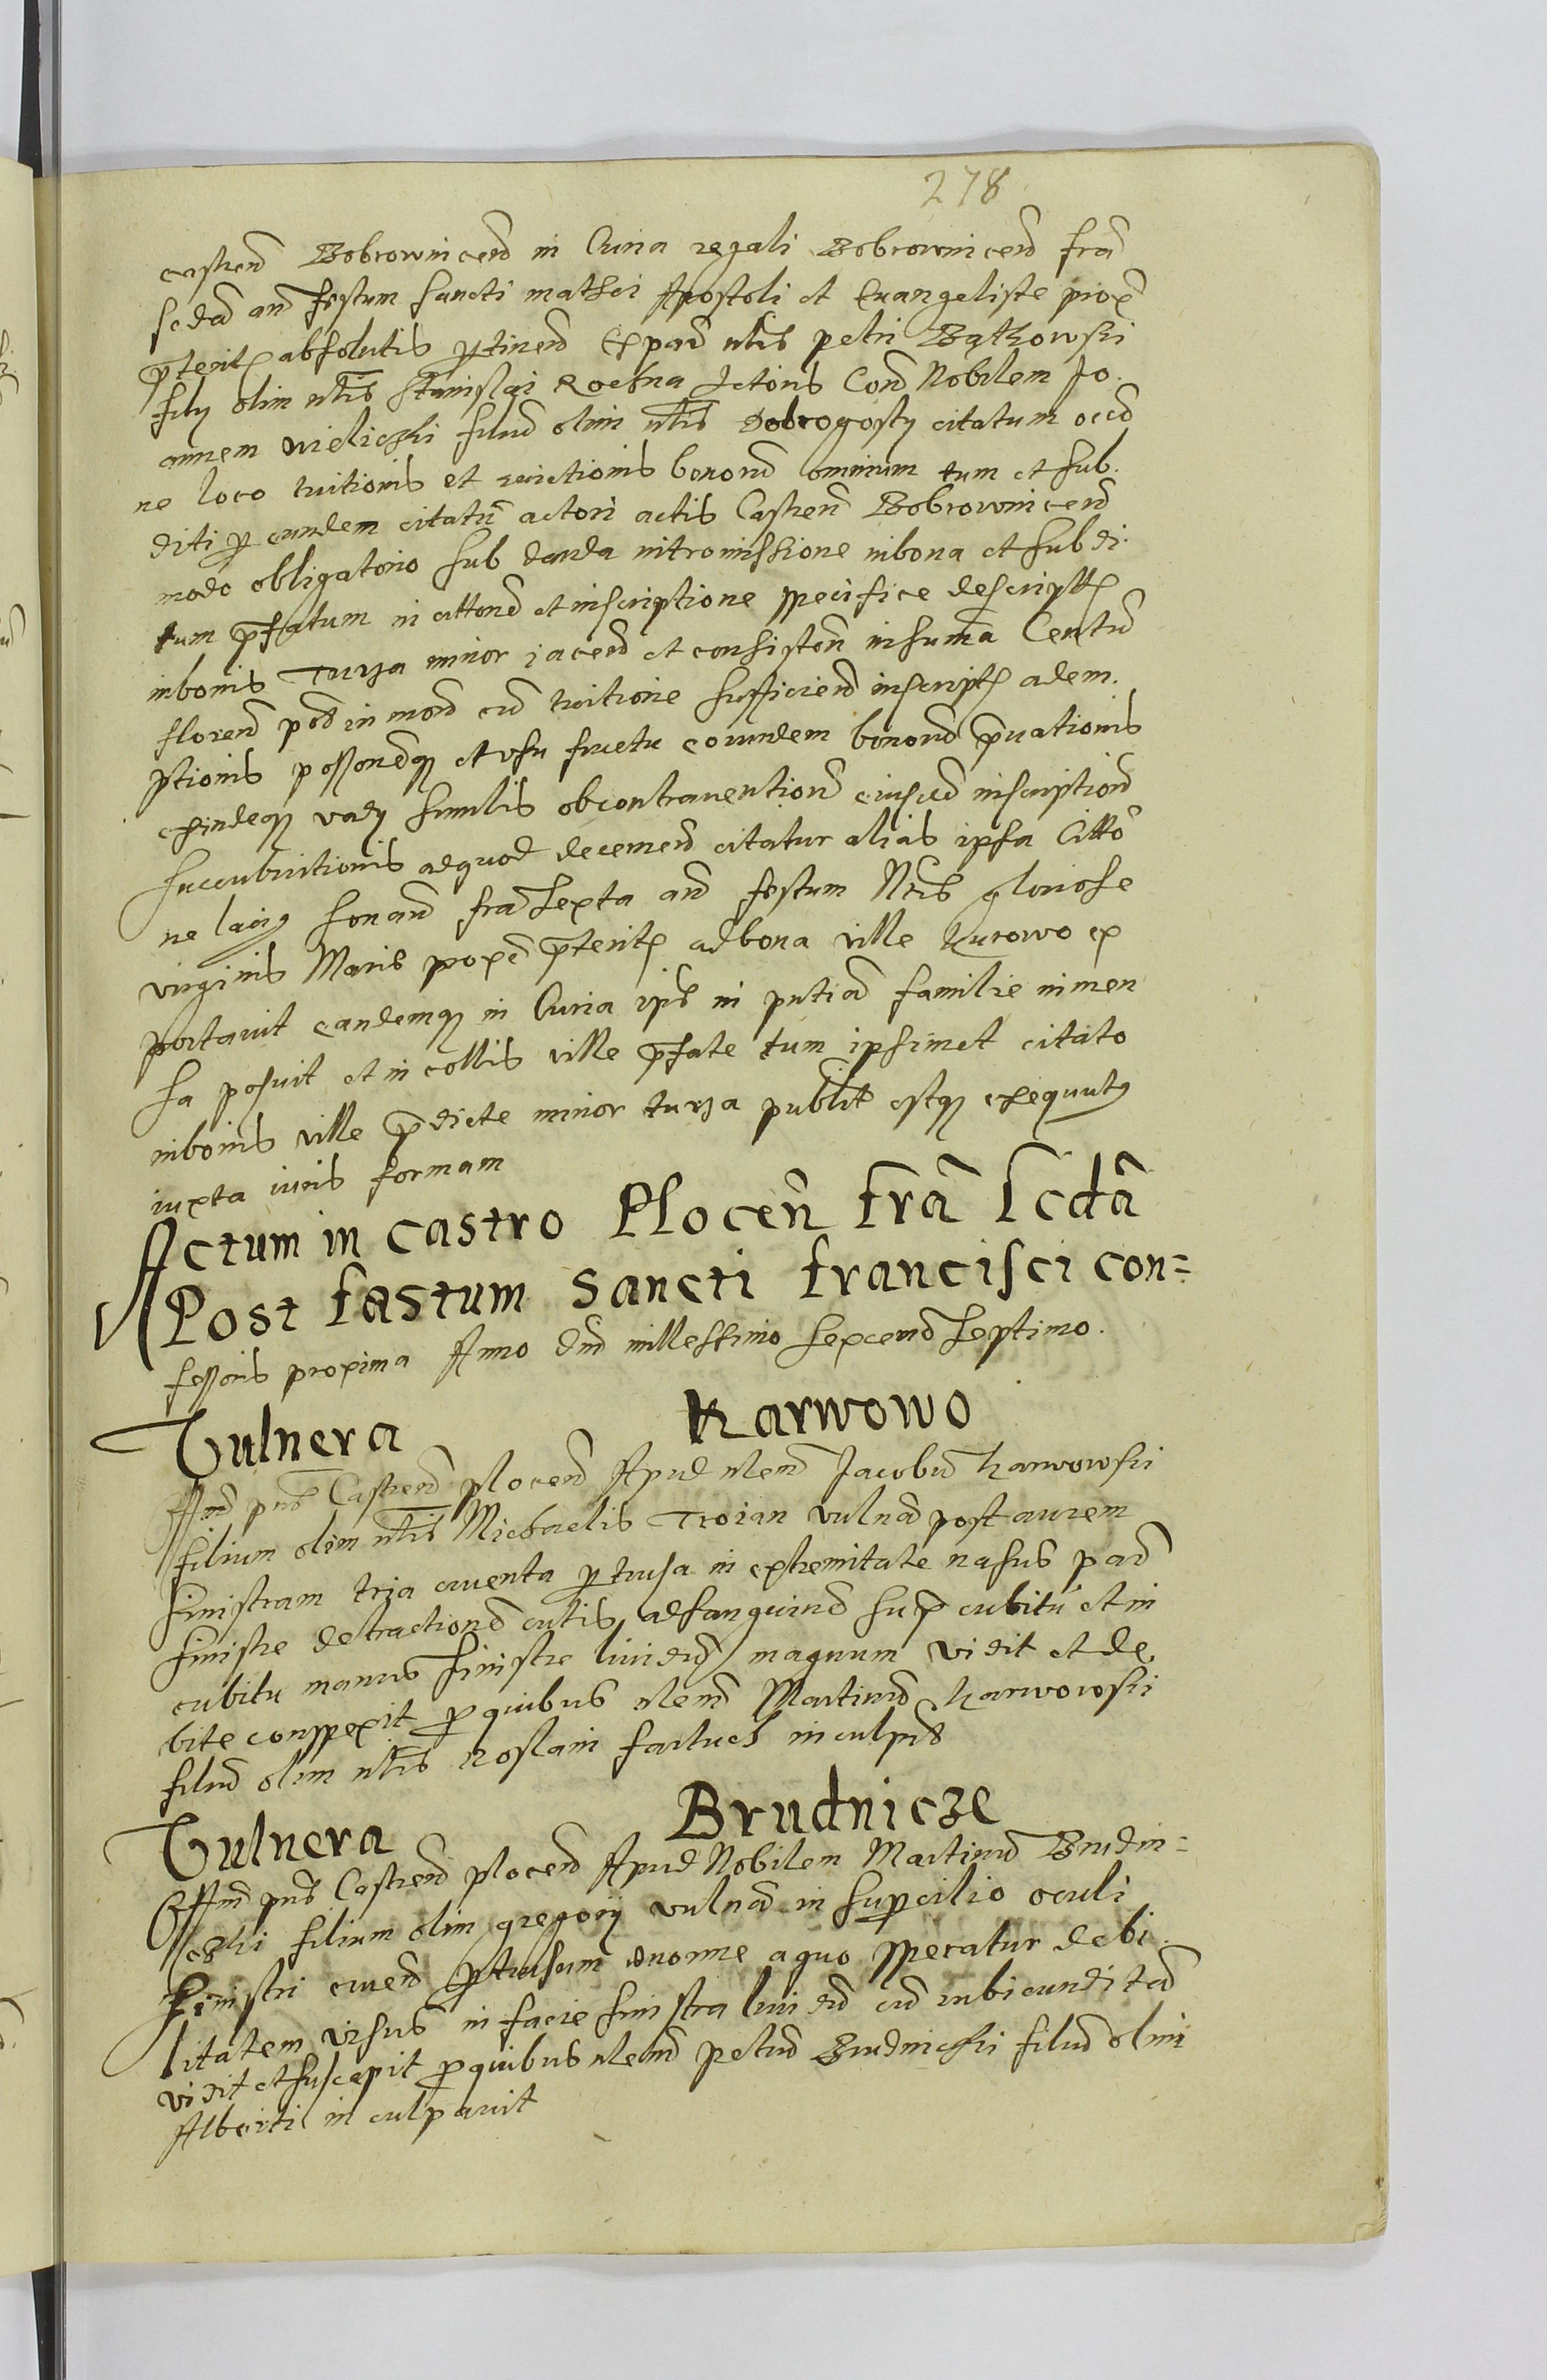 278
castren Bobrownicen in Curia regali Bobrownicen fra
scda an festum sancti mathei Apostoli et Euangeliste prox
pterit absolutis ptinen Ex par nlis petri Bątkowski
filij olim nlis Stanislai Rochna Actoris Con Nobilem Jo.
annem wieliczki filiu olim nlis Dobrogosty citatum occo
ne loco tuitionis et euictionis bonoru omnium tum et sub.
diti p eundem citatu actori actis Castren Bobrownicen
modo obligatorio sub danda intromissione inbona et subdi.
tum pfatum in cittone et inscriptione specifice descript
inbonis Turza minor iacen et consisten insuma Centu
floren pol in mon cu tuitione sufficien inscript adem.
ptionis possoneq et vsu fructu eorundem bonoru priuationis
exindeq vadij similis obcontrauention eiusd inscription
succubuitionis adquod decernen citatur alias ipsa Citto
ne lacig sonan fra sexta an festum Ntis gloriose
virginis Marie proxe pterit adbona ville kurowo ex
portauit eandemq in Curia ips in pntia familie inmen
sa posuit et in collis ville pfate tum ipsimet citato
inbonis ville pdicte minor turza publit estq exequut
iuxta iuris formam
Actum in castro Plocen fra scda
Post fastum sancti francisci con=
fessoris proxima Anno dni millessimo sexcen septimo.
Vulnera Karwowo
pns Castren plocen Apud nlem Jacobu karwowski
filium olim nlis Michaelis Troian vulna post aurem
sinistram tria cruenta ptrusa in extremitate nasus par
sinistre detraction cutis adsanguine sup cubitu et in
cubitu manus sinistre liuidu magnum vidit et de
bite conspexit p quibus nlem Martinu karwowski
filiu olim nlis Roslani inculps
Vulnera Brudnicze
pns Castren plocen Apud Nobilem Martinu Brudni=
czki filium olim gregorij vulna in supcilio oculi
sinistri cruen ptrusum enorme aquo speratur debi
litatem visus in facie sinistra liuidu cu rubicundita
vidit et suscepit p quibus nlem petru Brudniczki filiu olim
Alberti inculpauit